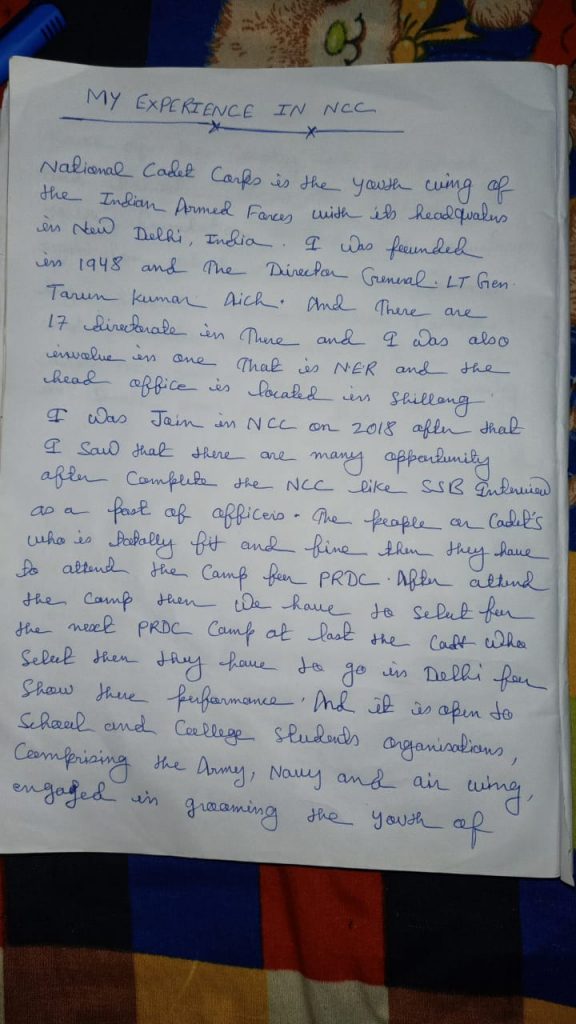 MY EXPERIENCE IN NCC
National Cadet Corps is the youth wing of
the Indian Armed Forces with its headquaters
in New Delhi, India. I was founded
in 1948 and The Director General. LT Gen.
Tarun Kumar Aich. And There are
17 directorate in There and I was also
involue in one That is NER and the
head office is located in Shillong.
I was Join in NCC on 2018 after that
I saw that there are many opportunity
after Complete the NCC like SSB Interview
as a post of officers. The people or Cadet's
who is totally fit and fine then they have
to attend the Camp for PRDC. After attend
the Camp then we have to select for
the next PRDC Camp at last the Cadt who
Select then they have to go in Delhi for
Show there performance. And it is open to
School and College students organisations,
Comprising the Army, Navy and air wing,
engaged in grooming the youth of